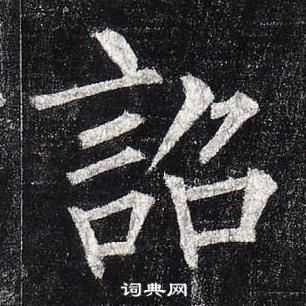 詔
词典网